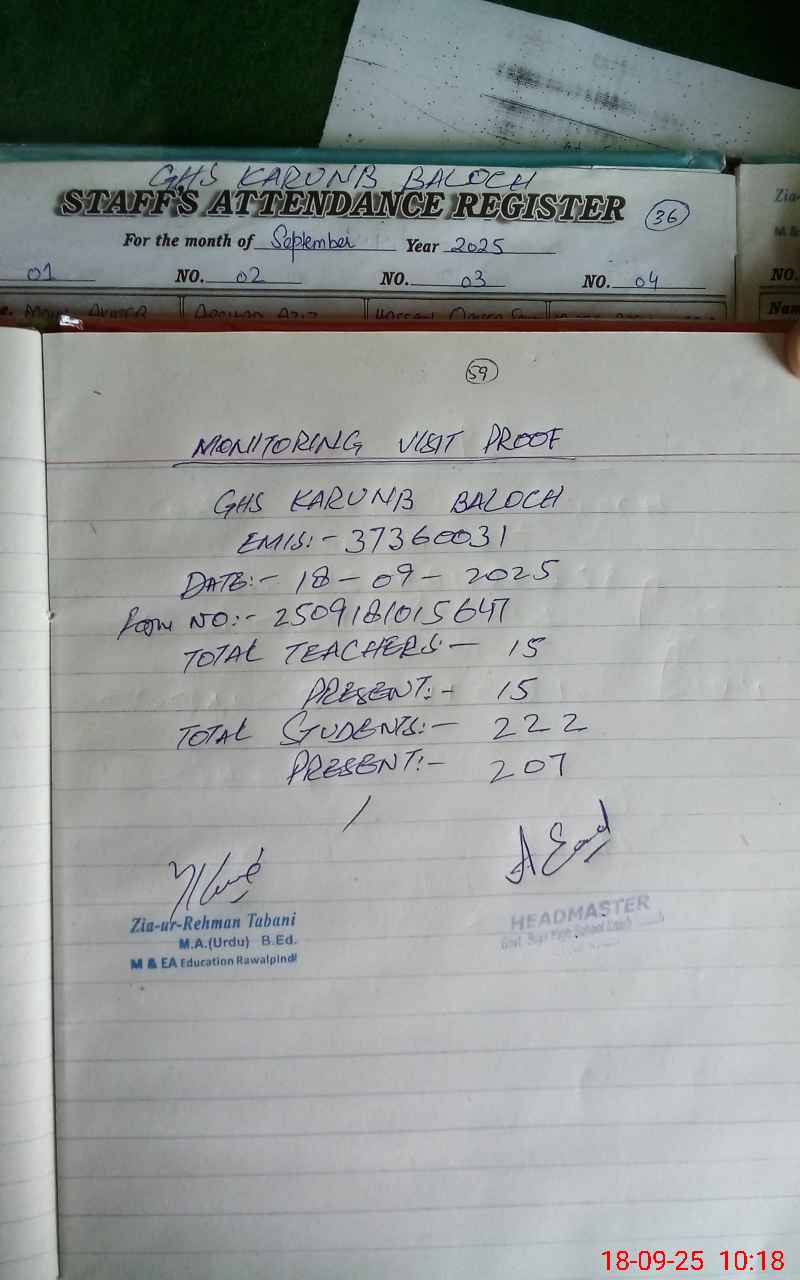 GHS KARUNB BALOCH
STAFF'S ATTENDANCE REGISTER
36
For the month of September Year 2025
01 NO. 02 NO. 03 NO. 04
Zia-
M &
NO.
Nam
59
MONITORING VISIT PROOF
GHS KARUNB BALOCH
EMIS:- 37360031
DATE:- 18-09-2025
NO:- 2509181015647
TOTAL TEACHERS:- 15
PRESENT:- 15
TOTAL STUDENTS:- 222
PRESENT:- 207
Zia-ur-Rehman Tabani
M.A.(Urdu) B.Ed.
M & EA Education Rawalpindi
HEADMASTER
Govt. Boys High School
18-09-25 10:18